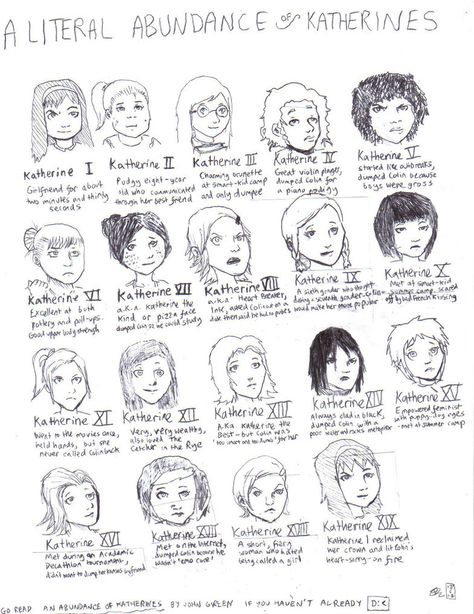 A LITERAL ABUNDANCE OF KATHERINES
Katherine I
Girlfriend for about
two minutes and thirty
seconds
Katherine II
Pudgy eight-year
old who communicated
through her best friend
Katherine III
Charming brunette
at smart-kid camp
and only dumpee
Katherine IV
Great violin player,
dumped Colin for
a piano prodigy
Katherine V
started like outbreaks,
dumped Colin because
boys were gross
Katherine VI
Excellent at both
pottery and pull-ups.
Good upper body strength
Katherine VII
a.k.a. Katherine the
Kind or pizza face
dumped Colin so he could study
Katherine VIII
a.k.a. Heart Breaker,
Inc, asked Colin out on a
date then said he had no pubes
Katherine IX
A sixth grader who thought
dating a seventh grader Colin
would make her more popular
Katherine X
Met at smart-kid
summer camp, scared
off by bad French kissing
Katherine XI
Went to the movies once,
held hands, but she
never called Colin back
Katherine XII
Very, very wealthy,
also loved the
Catcher in the Rye
Katherine XIII
A.K.A. Katherine the
Best-but Colin was
"too smart and too dumb" for her
Katherine XIV
Always clad in black,
dumped Colin with a
poor water and rocks metaphor
Katherine XV
Empowered feminist
with puppy-dog eyes
-met at summer camp
Katherine XVI
Met during an Academic
Decathlon tournament,
didn't want to dump her Kansas boyfriend
Katherine XVII
Met on the Internet,
dumped Colin because he
wasn't "emo core"
Katherine XVIII
A short, fiery
woman who hated
being called a girl
Katherine XIX
Katherine I reclaimed
her crown and lit Colin's
heart-song on fire
GO READ AN ABUNDANCE OF KATHERINES BY JOHN GREEN IF YOU HAVEN'T ALREADY D:<